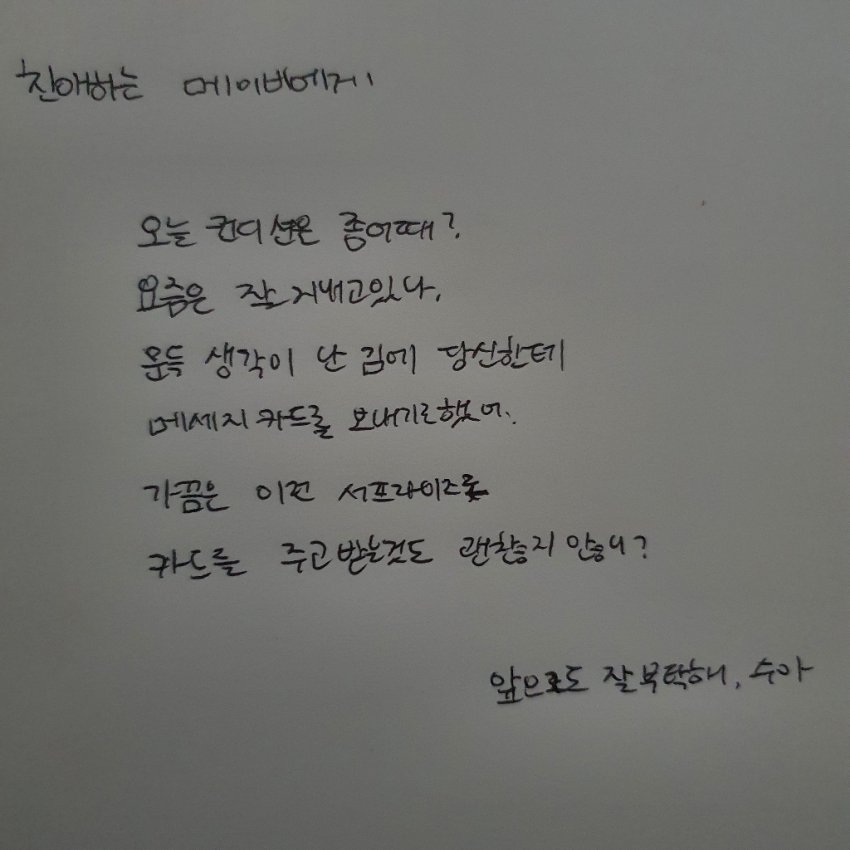 친애하는 메이비에게
오늘 컨디션은 좀어때?
요즘은 잘 지내고있다.
문득 생각이 난 김에 당신한테
메세지 카드를 보내기로했어.
가끔은 이런 서프라이즈로
카드를 주고받는것도 괜찮지 않니?
앞으로도 잘 부탁해, 수아